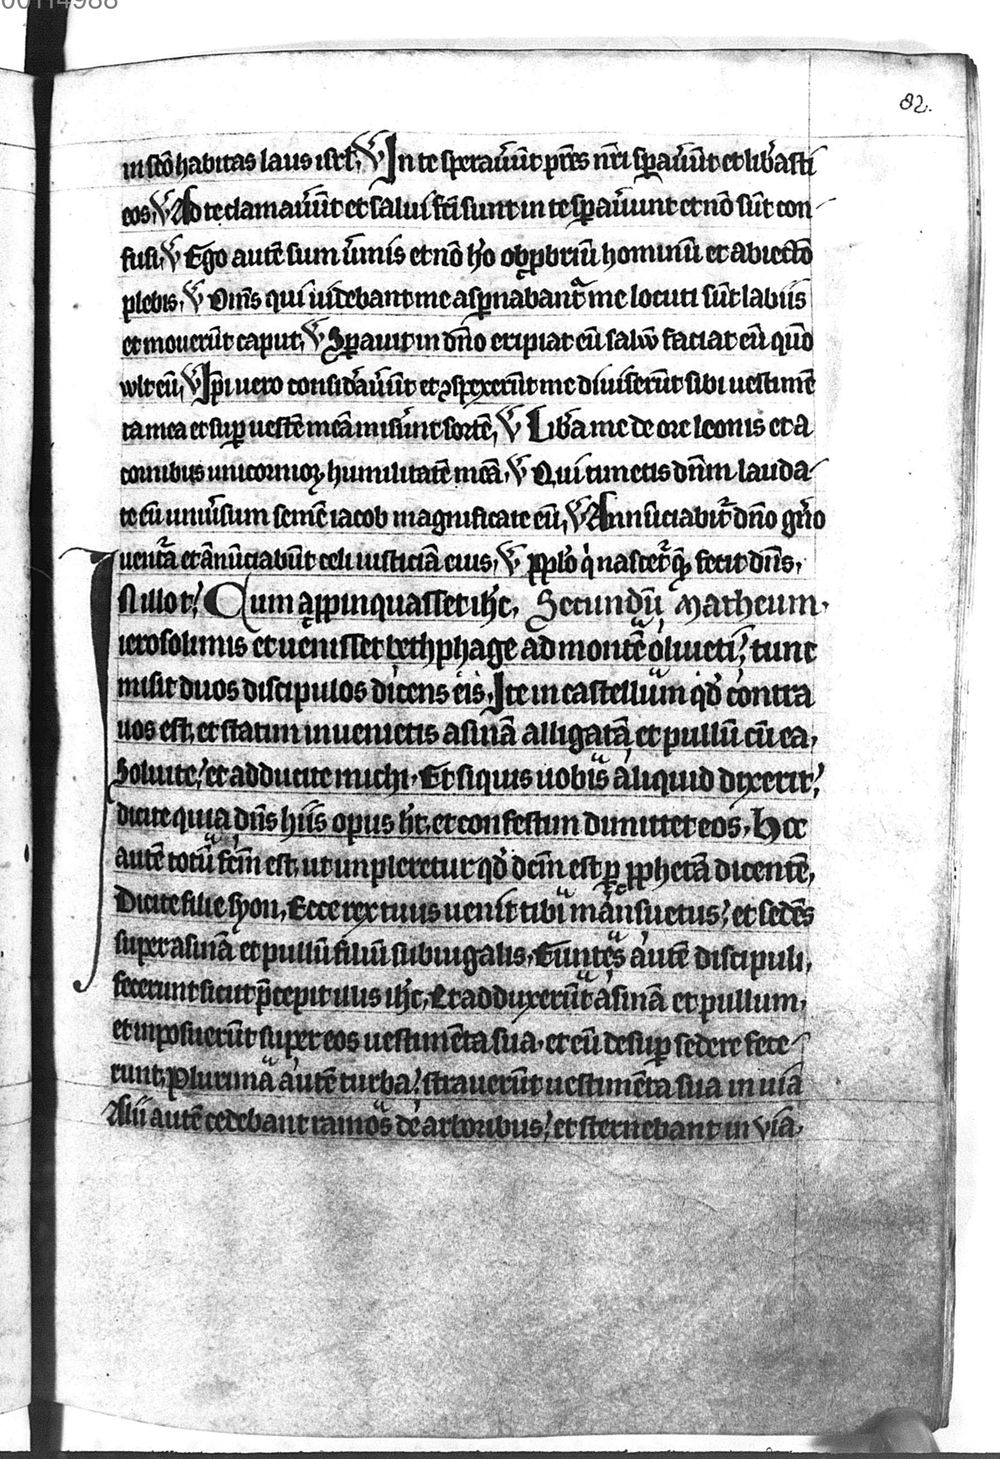 00114988
82.
in sc̄o habitas laus isrl̄. V̄ In te sperauer̄ūt pr̄es nr̄i sꝑauer̄ūt et lib̄asti
eos. V̄ Ad te clamauer̄ūt et salui fc̄i sunt in te sꝑauer̄unt et nō sūt con-
fusi. V̄ Ego autē sum ūmis et nō hō obꝓbriū hominū et abiectō
plebis. V̄ Om̄s qui uidebant me asꝑnabant᷑ me locuti sūt labiis
et mouerūt caput. V̄ Sꝑauit in dn̄o eripiat eū saluū faciat eū qm̄o
wlt eū. V̄ Ip̄i uero consid̄auer̄ūt et ꝯspexerūt me diuiserūt sibi uestimē
ta mea et suꝑ uestē meā miserūt sortē. V̄ Lib̄a me de ore leonis et a
cornibus unicornioꝝ humilitatē meā. V̄ Qui timetis dn̄m lauda-
te eū uniūsum semē iacob magnificate eū. V̄ Annūciabit᷑ dn̄o gn̄o
uent᷑a et ānūciabūt celi iusticiā eius. V̄ pꝑlo q̇ nascet᷑ q̄ fecit dn̄s.
In illo t̄. Cum aꝓpinquasset ih̄c, Secundū Matheum.
ierosolimis et uenisset bethphage ad montē oliueti, tunc
misit duos discipulos dicens eis. Ite in castellum qd̄ contra
uos est, et statim inuenietis asinā alligatā et pullū cū ea,
Soluite, et adducite michi. Et siquis uobis aliquid dixerit,
dicite quia dn̄s hiis opus h̄t, et confestim dimittet eos. Hoc
autē totū fc̄m est, ut impleretur qd̄ dc̄m est ꝑ ꝓphetā dicentē,
Dicite filie syon, Ecce rex tuus uenit tibi mansuetus, et sedēs
super asinā et pullū filiū subiugalis. Euntes autē discipuli,
fecerunt sicut p̄cepit illis ih̄c. Et adduxerūt asinā et pullum,
et inposuerūt super eos uestimēta sua, et eū desuꝑ sedere fece-
runt. Plurima autē turba, strauerūt uestimēta sua in uiā
Alii autē cedebant ramos de arboribus, et sternebant in viā.